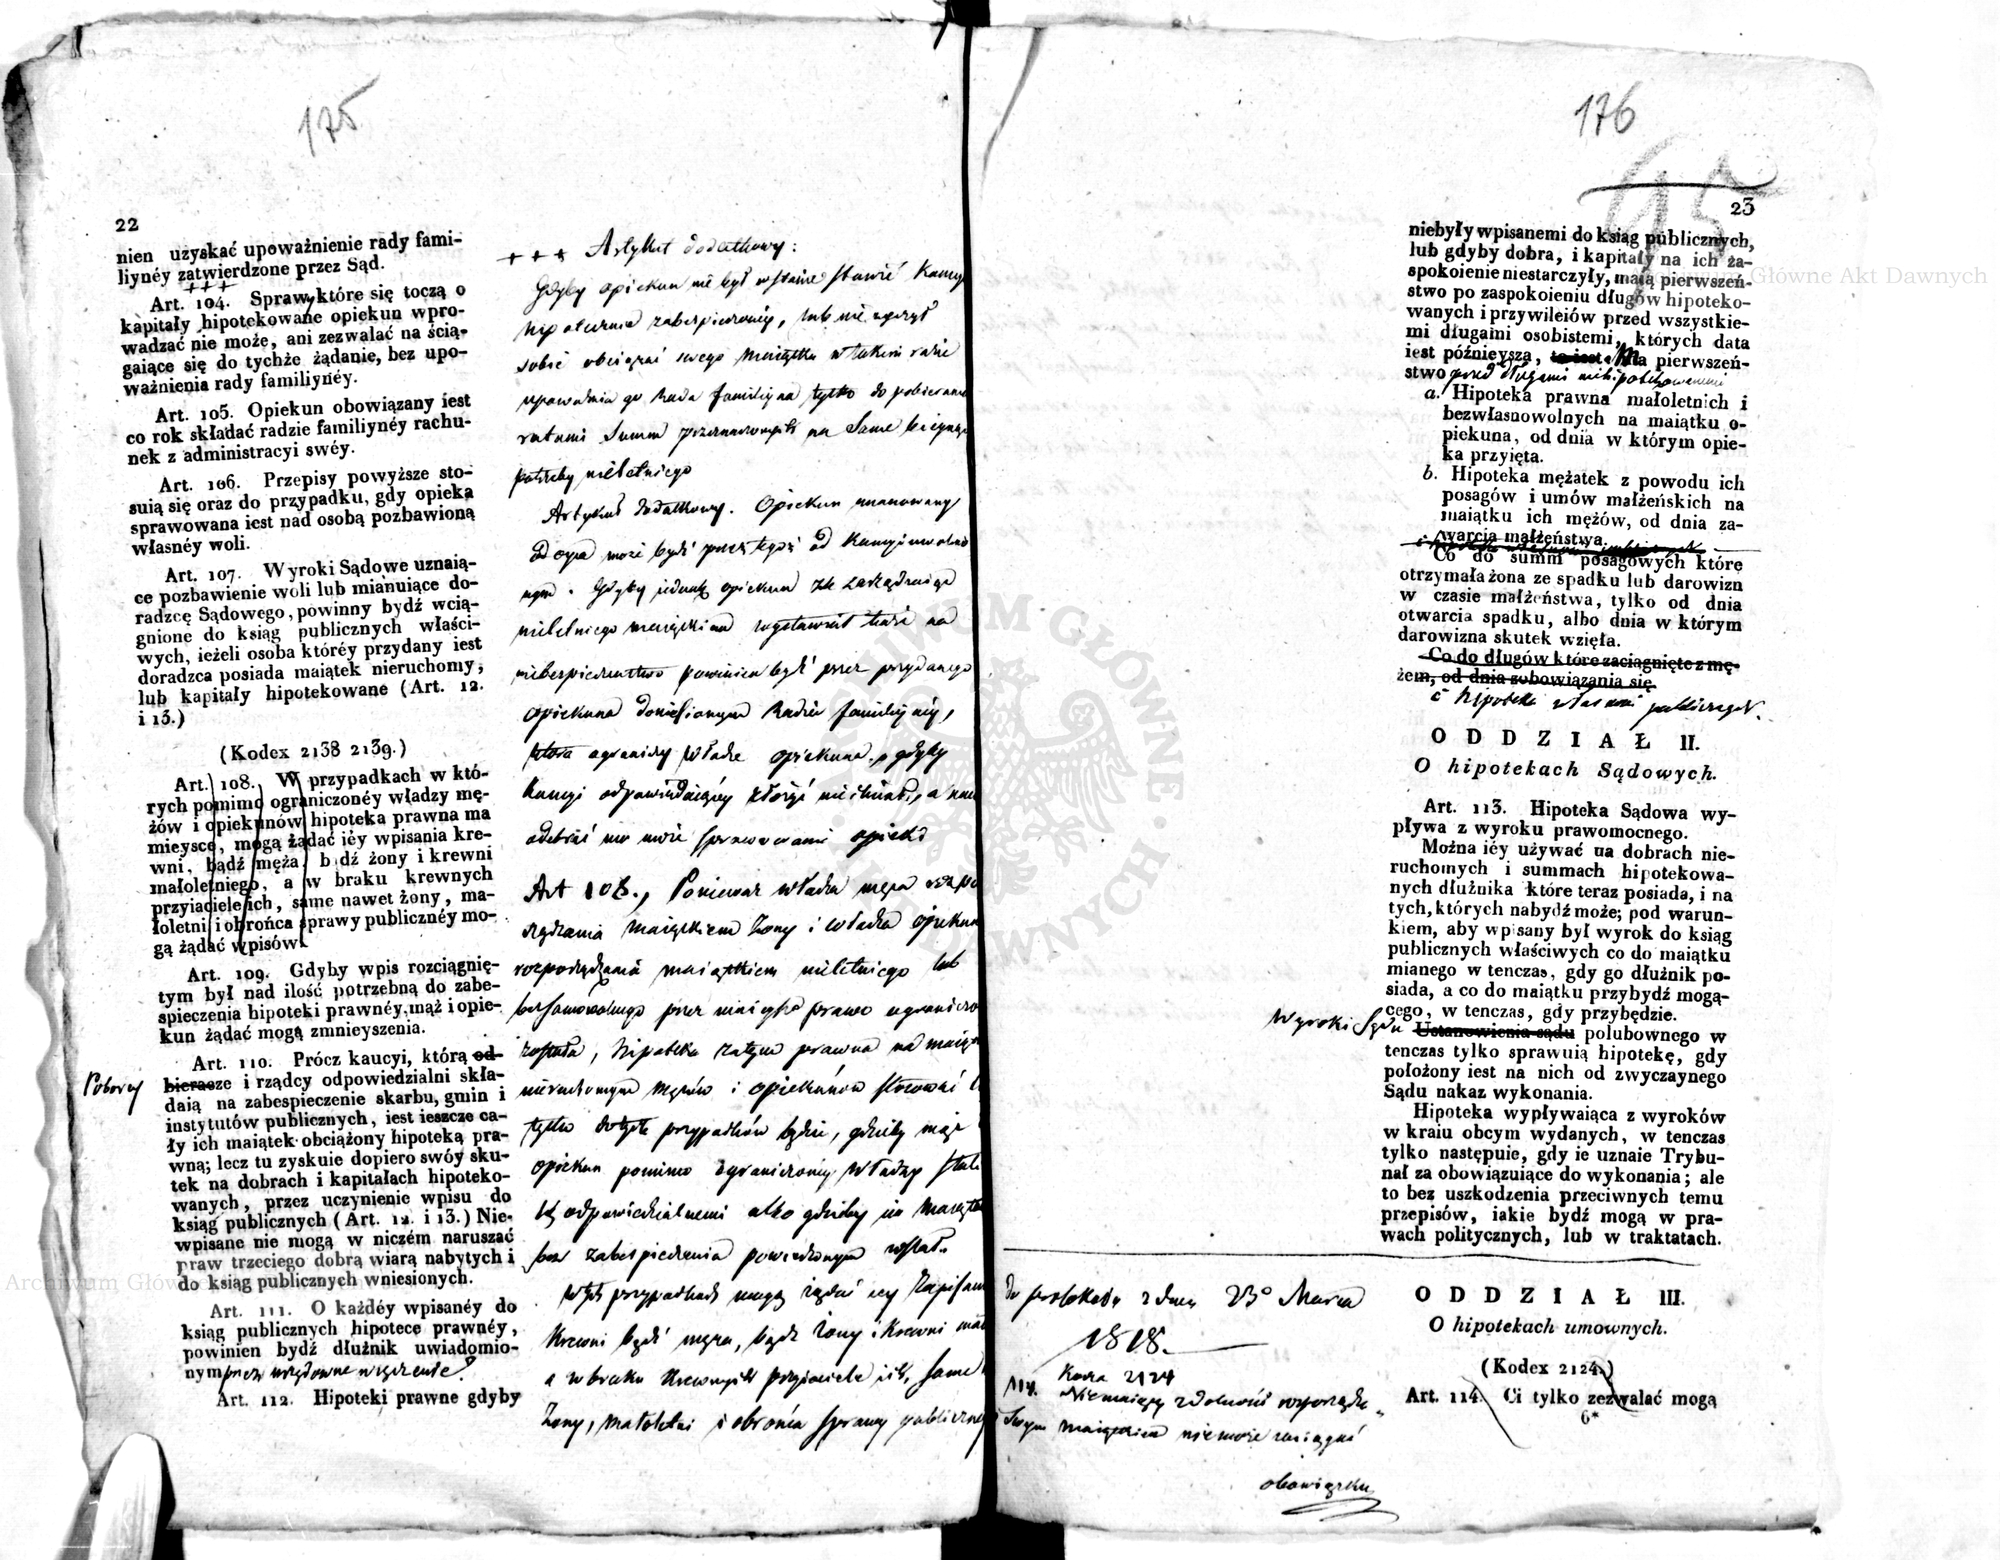 175
22
nien uzyskać upoważnienie rady fami-
liynéy zatwierdzone przez Sąd.
+++
Art. 104. Sprawy które się toczą o
kapitały hipotekowane opiekun wpro-
wadzać nie może, ani zezwalać na ścią-
gaiące się do tychże żądanie, bez upo-
ważnienia rady familiynéy.
Art. 105. Opiekun obowiązany iest
co rok składać radzie familiynéy rachu-
nek z administracyi swéy.
Art. 106. Przepisy powyższe sto-
suią się oraz do przypadku, gdy opieka
sprawowana iest nad osobą pozbawioną
własnéy woli.
Art. 107. Wyroki Sądowe uznaią-
ce pozbawienie woli lub mianuiące do-
radzcę Sądowego, powinny bydź wcią-
gnione do ksiąg publicznych właści-
wych, ieżeli osoba któréy przydany iest
doradzca posiada maiątek nieruchomy,
lub kapitały hipotekowane (Art. 12.
i 13.)
(Kodex 2138 2139.)
Art. 108. W przypadkach w któ-
rych pomimo ograniczonéy władzy mę-
żów i opiekunów hipoteka prawna ma
mieysce, mogą żądać iéy wpisania kre-
wni, bądź męża, b dź żony i krewni
małoletniego, a w braku krewnych
przyiaciele ich, same nawet żony, ma-
łoletni i obrońca sprawy publicznéy mo-
gą żądać wpisów.
Art. 109. Gdyby wpis rozciągnię-
tym był nad ilość potrzebną do zabe-
spieczenia hipoteki prawnéy, mąż i opie-
kun żądać mogą zmnieyszenia.
Art. 110. Prócz kaucyi, którą od-
Poborcy bieracze i rządcy odpowiedzialni skła-
daią na zabespieczenie skarbu, gmin i
instytutów publicznych, iest ieszcze ca-
ły ich maiątek obciążony hipoteką pra-
wną; lecz tu zyskuie dopiero swóy sku-
tek na dobrach i kapitałach hipoteko-
wanych, przez uczynienie wpisu do
ksiąg publicznych (Art. 12. i 13.) Nie-
wpisane nie mogą w niczém naruszać
praw trzeciego dobrą wiarą nabytych i
do ksiąg publicznych wniesionych.
Art. 111. O każdéy wpisanéy do
ksiąg publicznych hipotece prawnéy,
powinien bydź dłużnik uwiadomio-
nym przez urzędowne wręczenie.
Art. 112. Hipoteki prawne gdyby
+++ Artykuł dodatkowy:
Gdyby opiekun nie był wstanie stawić
hipotecznie zabespieczonéy, lub nie
sobie obciążać swego maiątku w takim razie
upoważnia go Rada familiyna tylko do pobierania
ratami Summ przeznaczonych na same bieżące
potrzeby nieletniego
Artykuł dodatkowy. Opiekun mianowany
od oyca może bydź przez tegoż od Kaucyi uwolnio
nym. Gdyby iednak opiekun źle zarządzaiąc
nieletniego maiątkiem wystawiał takowy na
niebespieczeństwo powinien bydź przez przydanego
opiekuna doniesionym Radzie familiynéy,
która ograniczy władze opiekuna, gdyby
Kaucyi odpowiedniéy złożyć nie chciał, a
odebrać mu może sprawowanie opieki
Art 108., Ponieważ władza męża
rządzania maiątkiem żony i władza opiekuna
rozporządzania maiątkiem nieletniego lub
bezsamowolnego przez ninieysze prawo ograniczona
została, hipoteka zatym prawna na maiątku
nieruchomym mężów i opiekunów stosować
tylko do tych przypadków będzie, gdzieby mąż
opiekun pomimo ograniczonéy władzy stali
się odpowiedzialnemi albo gdzieby im maiątek
bez zabespieczenia powierzonym został.
W tych przypadkach mogą żądać iey zapisania
Krewni bądź męża, bądź żony i Krewni
a w braku Krewnych przyiaciele ich, same
żony, małoletni i obrońca sprawy publicznéy
176
23
niebyły wpisanemi do ksiąg publicznych,
lub gdyby dobra, i kapitały na ich za-
spokoienie niestarczyły, maią pierwszeń-
stwo po zaspokoieniu długów hipoteko-
wanych i przywileiów przed wszystkie-
mi długami osobistemi, których data
iest późnieysza, to iest: Ma pierwszeń-
stwo przed długami niehipotekowanemi
a. Hipoteka prawna małoletnich i
bezwłasnowolnych na maiątku o-
piekuna, od dnia w którym opie-
ka przyięta.
b. Hipoteka mężatek z powodu ich
posagów i umów małżeńskich na
maiątku ich mężów, od dnia za-
warcia małżeństwa.
Co do summ posagowych które
otrzymała żona ze spadku lub darowizn
w czasie małżeństwa, tylko od dnia
otwarcia spadku, albo dnia w którym
darowizna skutek wzięła.
Co do długów które zaciągnięte z mę-
żem, od dnia zobowiązania się
c hipoteka publicznych.
ODDZIAŁ II.
O hipotekach Sądowych.
Art. 113. Hipoteka Sądowa wy-
pływa z wyroku prawomocnego.
Można iéy używać na dobrach nie-
ruchomych i summach hipotekowa-
nych dłużnika które teraz posiada, i na
tych, których nabydź może; pod warun-
kiem, aby wpisany był wyrok do ksiąg
publicznych właściwych co do maiątku
mianego w tenczas, gdy go dłużnik po-
siada, a co do maiątku przybydź mogą-
cego, w tenczas, gdy przybędzie.
Wyroki Sądu Ustanowienia sądu polubownego w
tenczas tylko sprawuią hipotekę, gdy
położony iest na nich od zwyczaynego
Sądu nakaz wykonania.
Hipoteka wypływaiąca z wyroków
w kraiu obcym wydanych, w tenczas
tylko następuie, gdy ie uznaie Trybu-
nał za obowiązuiące do wykonania; ale
to bez uszkodzenia przeciwnych temu
przepisów, iakie bydź mogą w pra-
wach politycznych, lub w traktatach.
ODDZIAŁ III.
O hipotekach umownych.
(Kodex 2124.)
Art. 114. Ci tylko zezwalać mogą
6*
Do protokołu z dnia 23o Marca
1818.
2124
114. Niemaiący zdolności rozporządz.
Swym maiątkiem niemoże zaciągać
obowiązku
Archiwum Główne Akt Dawnych
ARCHIWUM GŁÓWNE AKT DAWNYCH